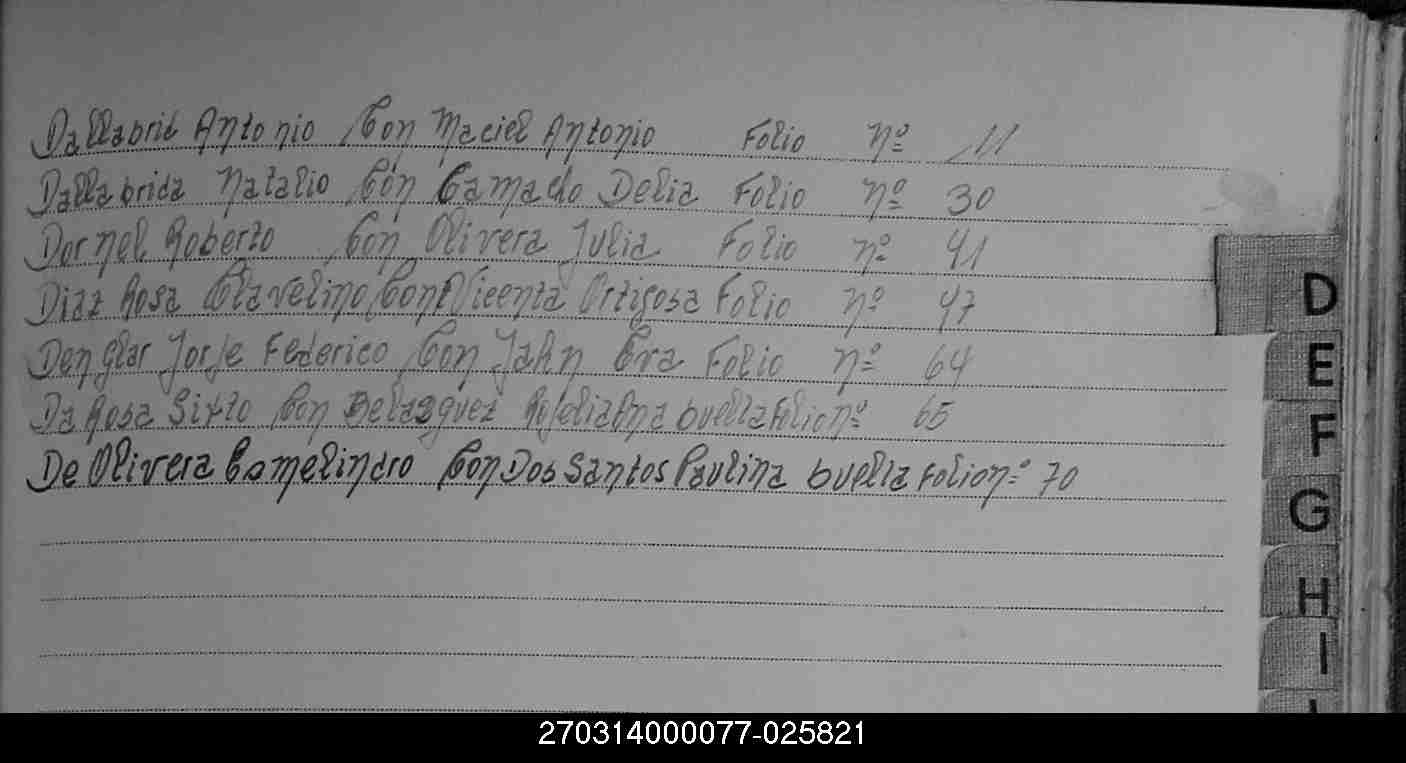 Dallabrit Antonio Con Maciel Antonio Folio nº 11
Dallabrida Natalio Con Camacho Delia Folio nº 30
Dornel Roberto Con Olivera Julia Folio nº 41
Diaz Rosa Clavelino Con Vicenta Ortigosa Folio nº 47
Denglar Jorje Federico Con Jahn Folio nº 64
Da Rosa Sixto Con Belazquez buella Folio nº 65
De Olivera Con Dos Santos Paulina buella Folio nº 70
D
E
F
G
H
I
270314000077-025821